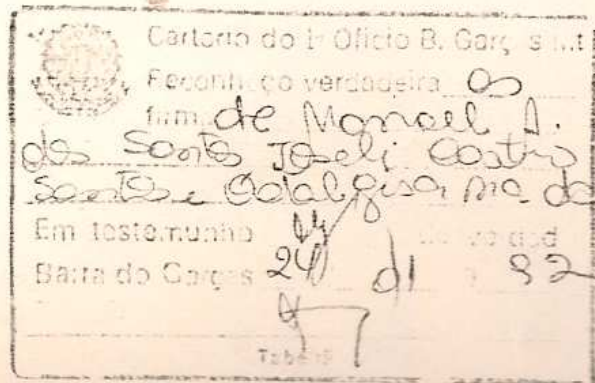 Cartorio do 1º Oficio B. Garç s
Reconheço verdadeira as
firm de Manoel A.
dos Santos Joseli Castro
Santos e Odalgisa ma do
Em testemunho
Barra do Garças 24 01 92
Tabe